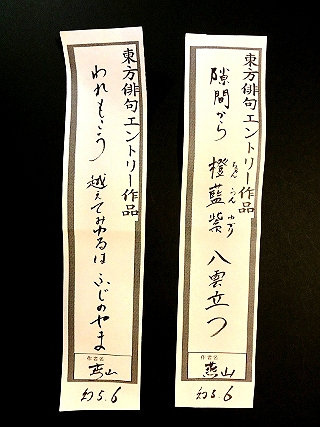 東方俳句エントリー作品
隙間から 橙藍紫 八雲立つ
ちぇん らん ゆかり
作者名
燕山
R5.6
東方俳句エントリー作品
われもこう 越えてみゆるは ふじのやま
作者名
燕山
R5.6